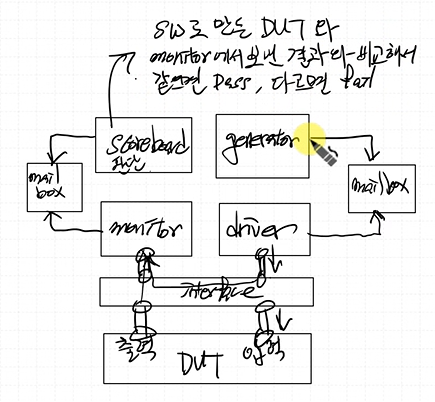 SW로 만든 DUT 와
monitor에서 보낸 결과와 비교해서
같으면 pass, 다르면 fail
scoreboard
판단
generator
mail
box
mailbox
monitor
driver
interface
출력
입력
DUT